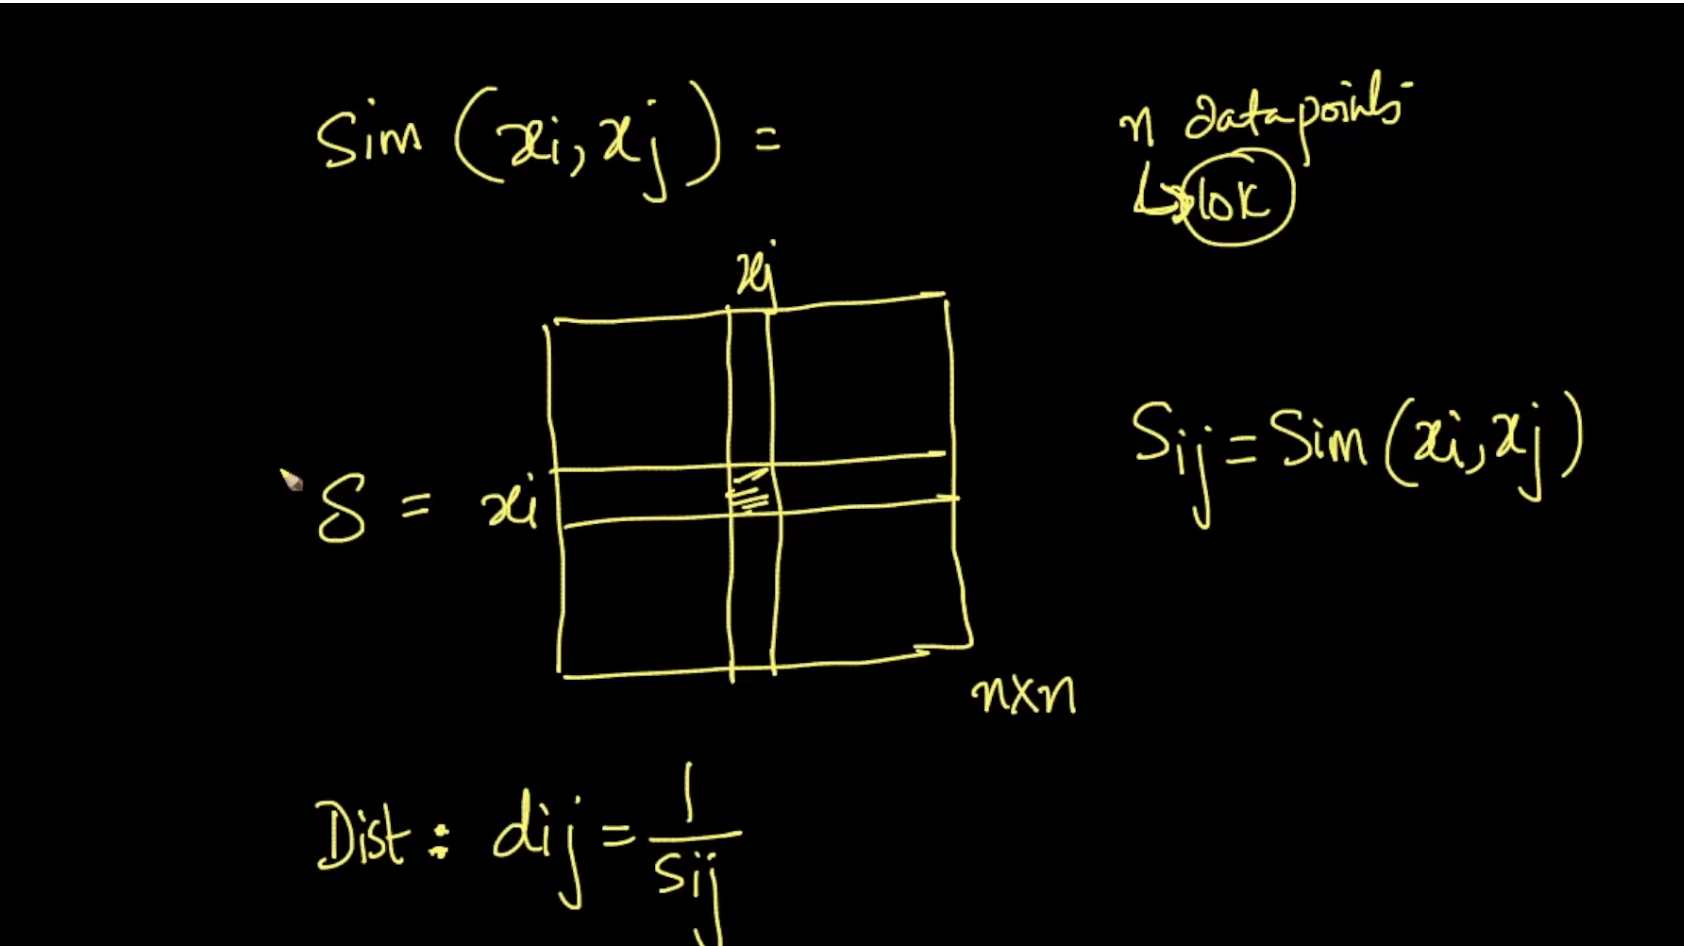 Sim (xi, xj) =
n datapoints
↳ 10K
xj
S = xi
Sij = Sim (xi, xj)
n×n
Dist : dij = 1/Sij